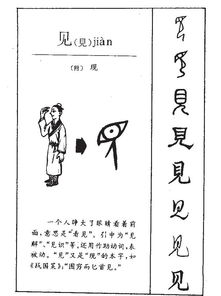 见(見)jiàn
(附) 现
一个人睁大了眼睛看着前
面,意思是“看见”。引申为“见
解”、“见识”等,还用作助动词,表
被动。“见”又是“现”的本字,如
《战国策》,“图穷而匕首见。”
見
見
见
见
见